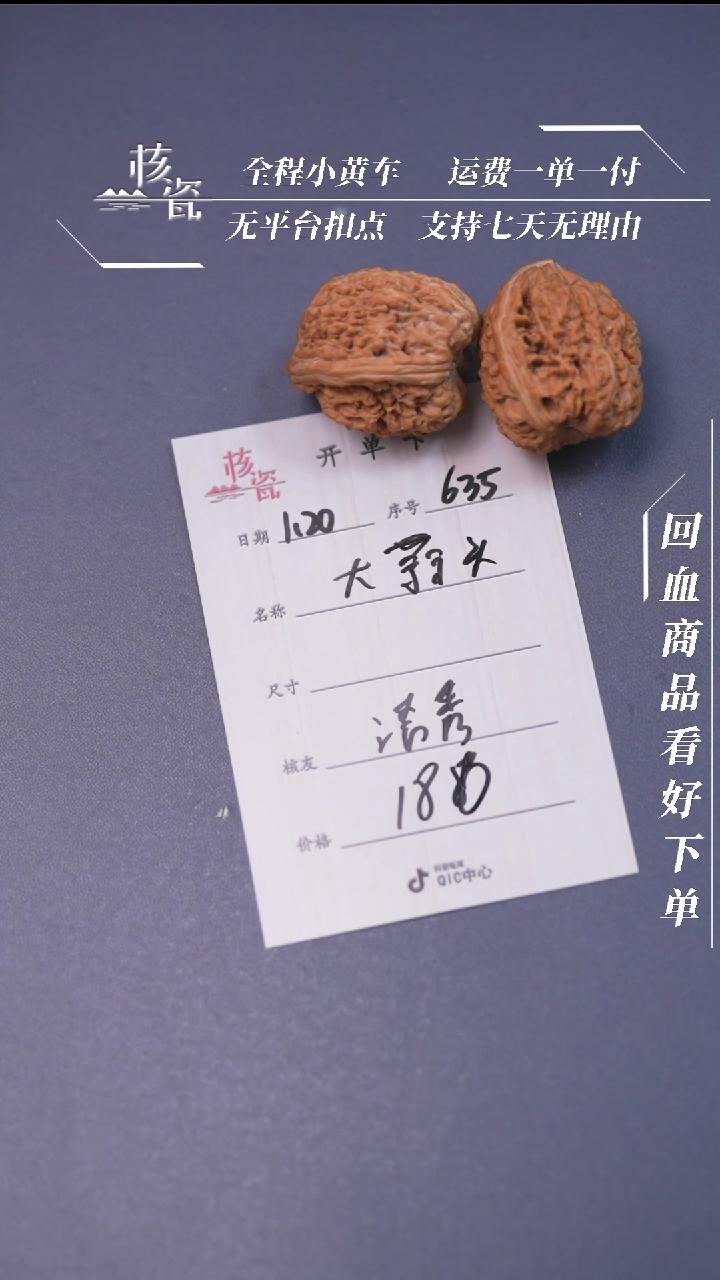 核瓷
全程小黄车 运费一单一付
无平台扣点 支持七天无理由
核瓷
开单卡
日期 1.20 序号 635
名称 大 头
尺寸
核友 清秀
价格 18
抖音电商
QIC中心
回血商品看好下单